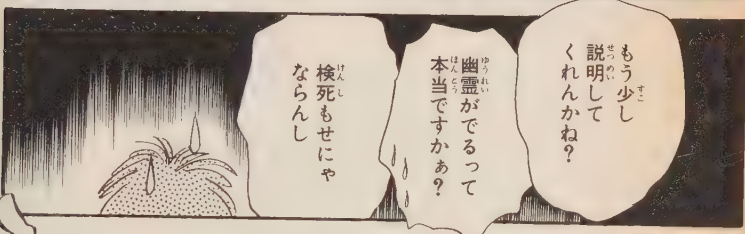 もう少し
説明して
くれんかね？
幽霊がでるって
本当ですかぁ？
検死もせにゃ
ならんし